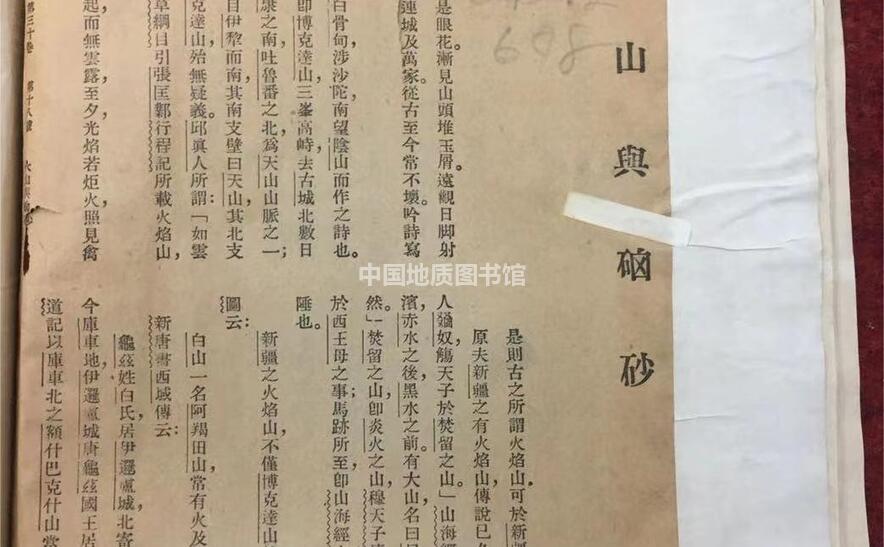 山與硇砂
608
是眼花。漸見山頭堆玉屑。遠觀日脚射
連城及萬家。從古至今常不壞。吟詩寫
白骨甸涉沙陀南望陰山而作之詩也。
卽博克達山三峯高峙去古城北數日
康之南吐魯番之北爲天山山脈之一
自伊犂而南其南支壁曰天山其北支
克達山殆無疑義。邱眞人所謂：「如雲
草綱目引張匡鄴行程記所載火焰山，
起而無雲霧至夕光焰若炬火照見禽
第三十卷 第十八號
是則古之所謂火焰山可於新疆
原夫新疆之有火焰山傳說已
人
奴觴天子於焚留之山。」山海經
濱赤水之後黑水之前。有大山名曰
然。」焚留之山卽炎火之山穆天子
於西王母之事馬跡所至卽山海經
陲也。
新疆之火焰山不僅博克達山
圖云：
白山一名阿羯田山常有火及
新唐書西域傳云：
龜茲姓白氏居伊邏盧城北
今庫車地伊邏盧城唐龜茲國王居
道記以庫車北之額什巴克什山當
中国地质图书馆